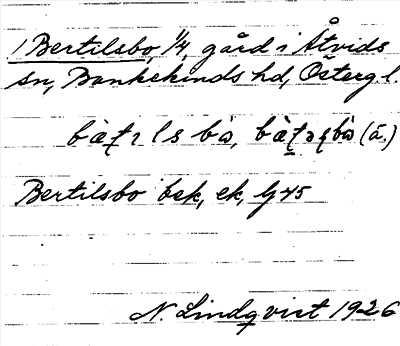 1 Bertilsbo 1/4, gård i Åtvids
sn, Bankekinds hd, Östergl.
(ä.)
Bertilsbo bsk, ek, lg 45
N. Lindqvist 1926